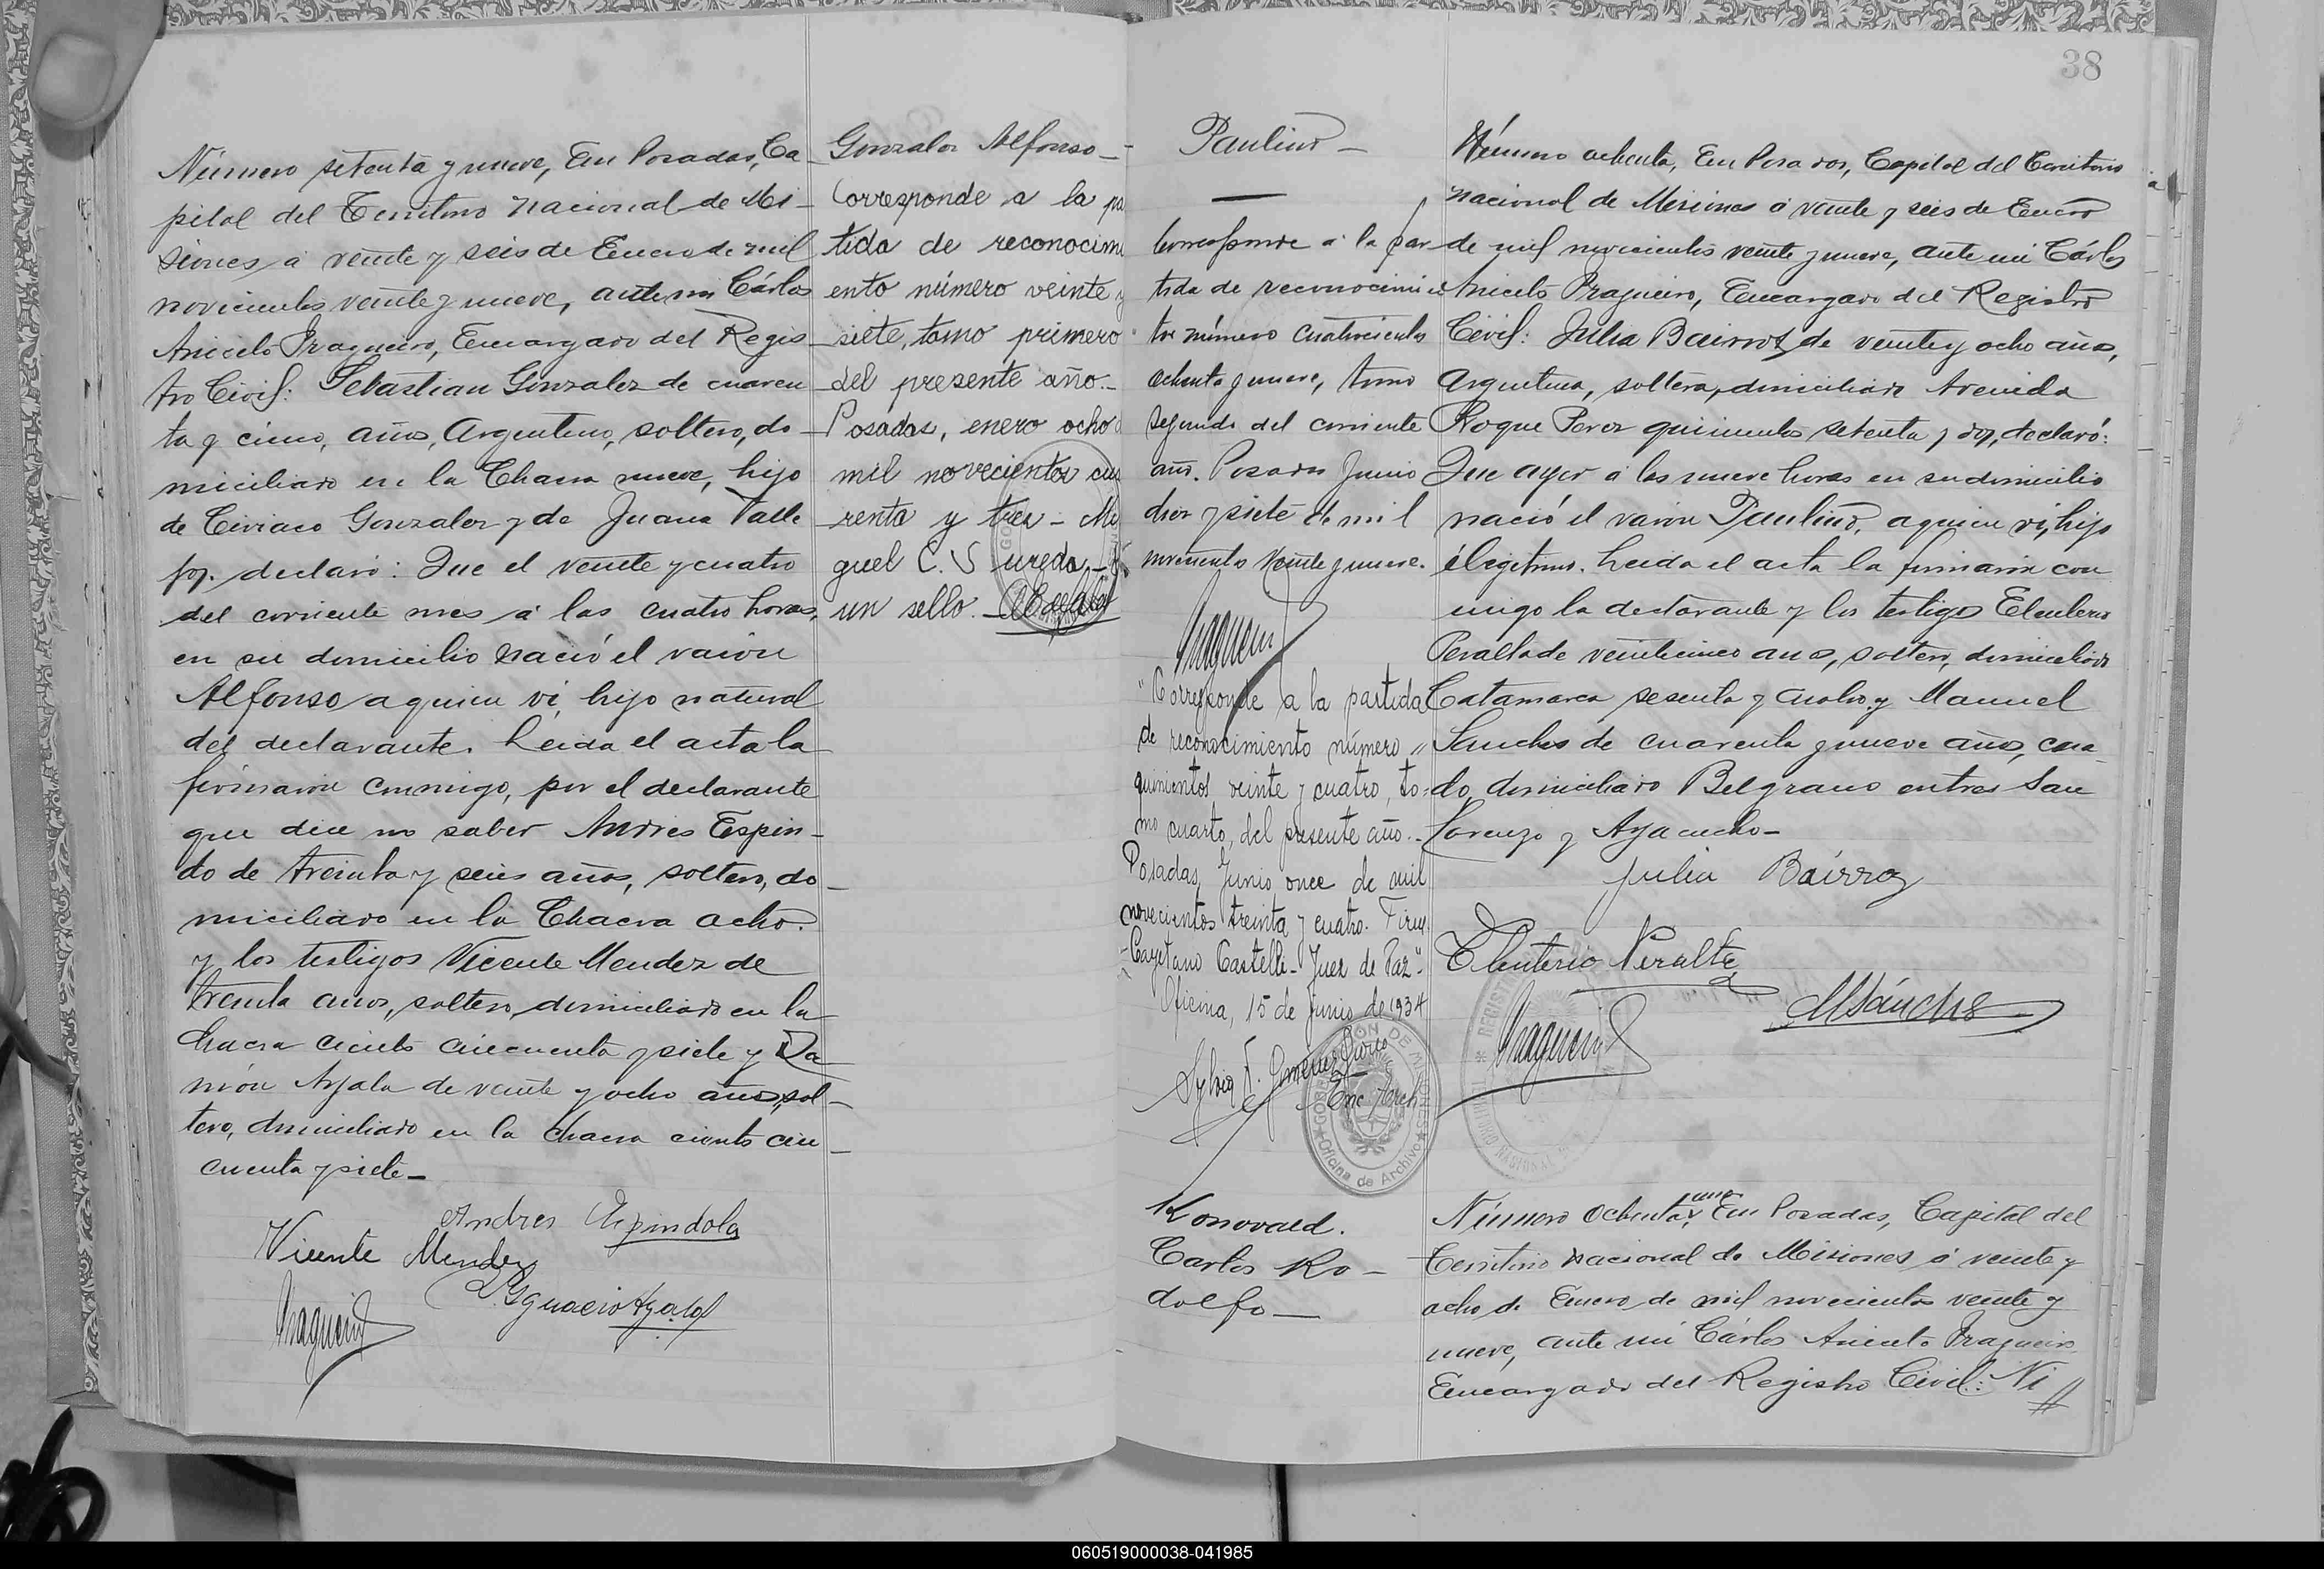 Número setenta y nueve, En Posadas, Ca-
pital del Territorio Nacional de Mi-
siones a veinte y seis de Enero de mil
novecientos veinte y nueve, ante mi Cárlos
Aniceto Fragueiro, Encargado del Regis-
tro Civil: Sebastian Gonzalez de cuaren
ta y cinco, años, Argentino, soltero, do-
miciliado en la Chacra nueve, hijo
de Ciriaco Gonzalez y de Juana Valle
jos. declaró: Que el veinte y cuatro
del corriente mes á las cuatro horas,
en su domicilio nació el varon
Alfonso a quien vi, hijo natural
del declarante. Leida el acta la
firmaron conmigo, por el declarante
que dice no saber Andres Espin-
do de treinta y seis años, soltero, do-
miciliado en la Chacra ocho.
y los testigos Vicente Mendez de
treinta años, soltero, domiciliado en la
Chacra ciento cincuenta y siete y
Ayala de veinte y ocho años, sol-
tero, domiciliado en la chacra ciento cin-
cuenta y siete-
Andres Espindola
Vicente Mendez
Ygnacio Ayala
Fragueiro
Gonzalez Alfonso-
Corresponde a la pa
tida de reconocimi
ento número veinte y
siete, tomo primero
del presente año.-
Posadas, enero ocho
mil novecientos cua
renta y tres - Mi
guel C. Sureda -
un sello.-
Paulino-
Corresponde á la par-
tida de reconocimien
to número cuatrocientos
ochenta y nueve, tomo
segundo del corriente
año. Posadas Junio
diez y siete de mil
novecientos veinte y nueve.
Fragueiro
"Corresponde a la partida
de reconocimiento número
quinientos veinte y cuatro, to-
mo cuarto, del presente año.-
Posadas, Junio once de mil
novecientos treinta y cuatro. Firm.
-Cayetano Castelli- Juez de Paz"-
Oficina, 15 de junio de 1934
Enc. Arch
GOBERNACION DE MISIONES
Oficina de Archivo
Konovaed.
Carlos Ro-
dolfo-
38
Número ochenta, En Posadas, Capital del Territorio
Nacional de Misiones á veinte y seis de Enero
de mil novecientos veinte y nueve, ante mi Cárlos
Aniceto Fragueiro, Encargado del Registro
Civil: Julia Bairros de veinte y ocho años,
Argentina, soltera, domiciliada Avenida
Roque Perez quinientos setenta y dos, declaró:
Que ayer á las nueve horas en su domicilio
nació el varon Paulino, a quien vi, hijo
ilegitimo. Leida el acta la firmaron con
migo la declarante y los testigos Eleuterio
Peralta de veinticinco años, soltero, domiciliado
Catamarca sesenta y cuatro y Manuel
Sanches de cuarenta y nueve años, casa-
do, domiciliado Belgrano entres San
Lorenzo y Ayacucho-
Julia Bairroz
Eleuterio Peralta
MSánches
Fragueiro
Número ochenta y uno En Posadas, Capital del
Territorio Nacional de Misiones á veinte y
ocho de Enero de mil novecientos veinte y
nueve, ante mi Cárlos Aniceto Fragueiro
Encargado del Registro Civil: Ni //
060519000038-041985